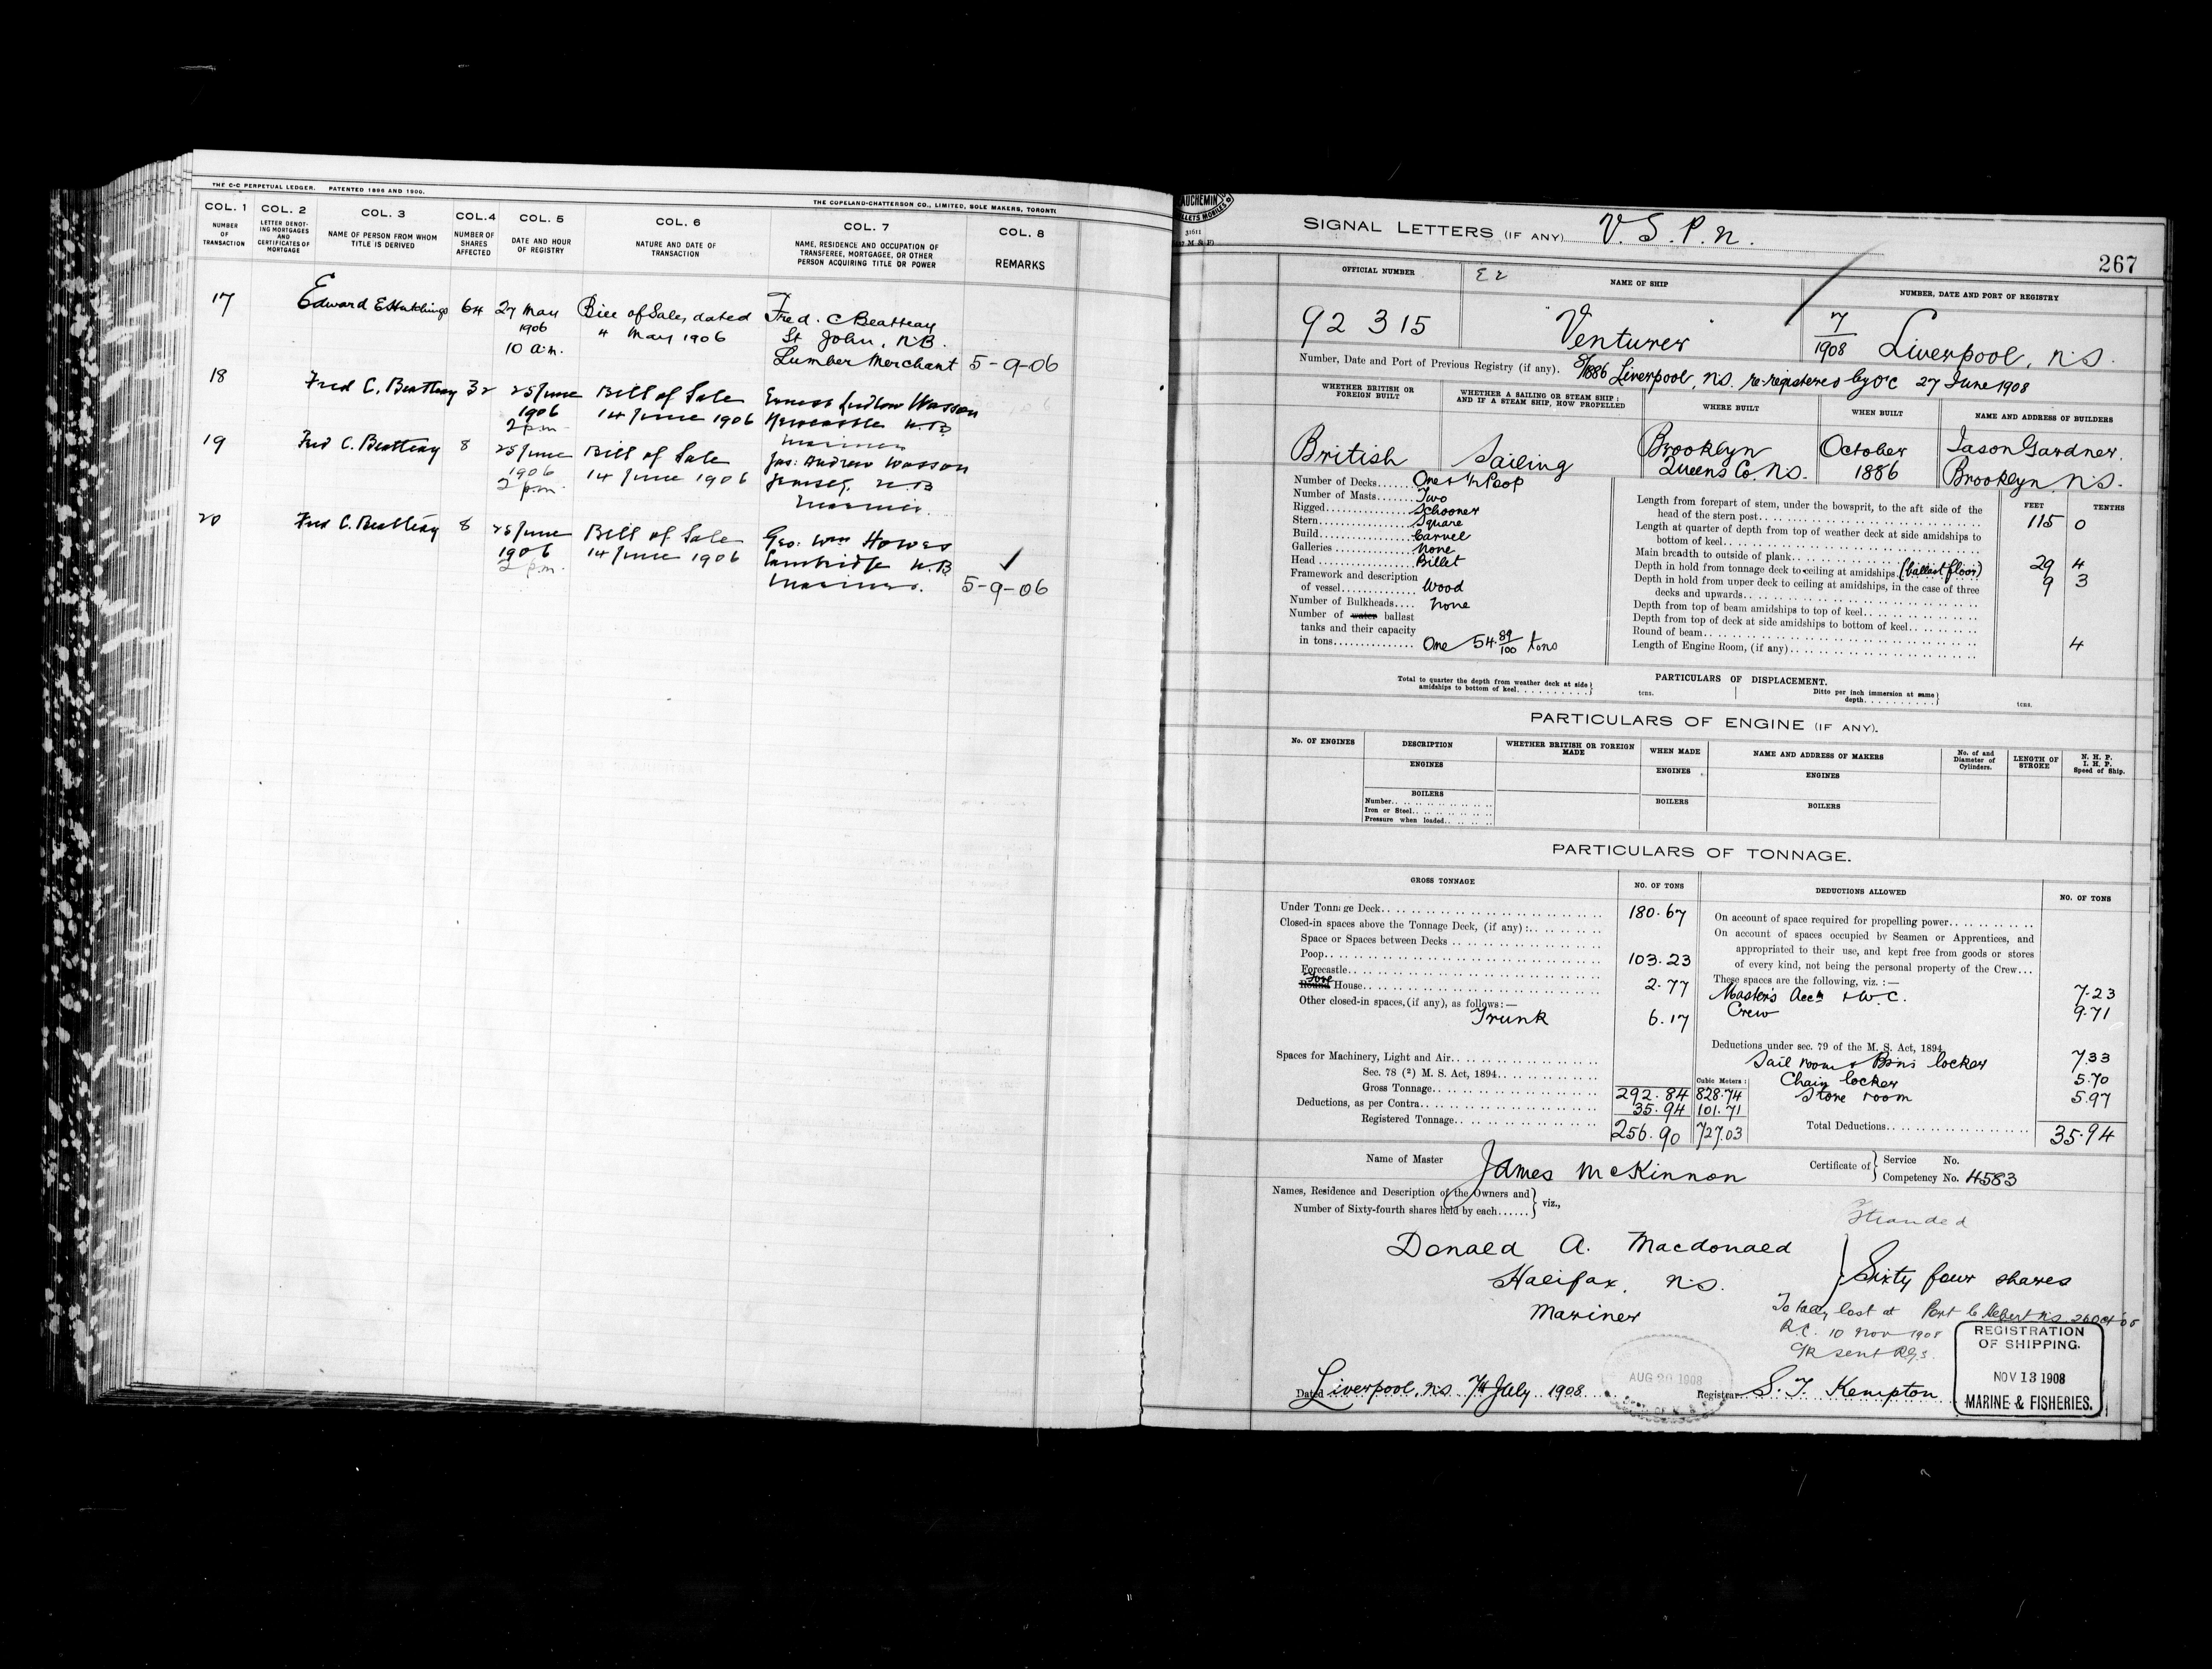 THE C-C PERPETUAL LEDGER. PATENTED 1896 AND 1900.
THE COPELAND-CHATTERSON CO., LIMITED, SOLE MAKERS, TORONTO
COL. 1 COL. 2 COL. 3 COL. 4 COL. 5 COL. 6 COL. 7 COL. 8
NUMBER OF TRANSACTION
LETTER DENOTING MORTGAGES AND CERTIFICATES OF MORTGAGE
NAME OF PERSON FROM WHOM TITLE IS DERIVED
NUMBER OF SHARES AFFECTED
DATE AND HOUR OF REGISTRY
NATURE AND DATE OF TRANSACTION
NAME, RESIDENCE AND OCCUPATION OF TRANSFEREE, MORTGAGEE, OR OTHER PERSON ACQUIRING TITLE OR POWER
REMARKS
17 Edward E Hutchings 64 27 May Bill of Sale, dated Fred. C Beatteay
1906 " May 1906 St John, N.B.
10 a.m. Lumber Merchant 5-9-06
18 Fred C. Beatteay 32 25 June Bill of Sale Ernest Ludlow Wasson
1906 14 June 1906 Newcastle N.B.
2 p.m. Mariner
19 Fred C. Beatteay 8 25 June Bill of Sale Jas. Andrew Wasson
1906 14 June 1906 N.B.
2 p.m. Mariner.
20 Fred C. Beatteay 8 25 June Bill of Sale Geo. Wm Howes
1906 14 June 1906 Cambridge N.B. ✓
2 p.m. Mariner. 5-9-06
SIGNAL LETTERS (IF ANY) V. S. P. N.
267
OFFICIAL NUMBER NAME OF SHIP NUMBER, DATE AND PORT OF REGISTRY
92 315 Venturer 7/1908 Liverpool, N.S.
Number, Date and Port of Previous Registry (if any). 8/1886 Liverpool, N.S. re-registered by O'C 27 June 1908
WHETHER BRITISH OR FOREIGN BUILT
WHETHER A SAILING OR STEAM SHIP: AND IF A STEAM SHIP, HOW PROPELLED
WHERE BUILT
WHEN BUILT
NAME AND ADDRESS OF BUILDERS
British Sailing Brooklyn October Jason Gardner.
Queens Co. N.S. 1886 Brooklyn N.S.
Number of Decks One & Poop
Number of Masts Two
Rigged Schooner
Stern Square
Build Carvel
Galleries None
Head Billet
Framework and description of vessel Wood
Number of Bulkheads None
Number of water ballast tanks and their capacity in tons One 54 89/100 tons
FEET TENTHS
Length from forepart of stem, under the bowsprit, to the aft side of the head of the stern post 115 0
Length at quarter of depth from top of weather deck at side amidships to bottom of keel
Main breadth to outside of plank 29 4
Depth in hold from tonnage deck to ceiling at amidships (ballast floor) 9 3
Depth in hold from upper deck to ceiling at amidships, in the case of three decks and upwards
Depth from top of beam amidships to top of keel
Depth from top of deck at side amidships to bottom of keel
Round of beam 4
Length of Engine Room, (if any)
PARTICULARS OF DISPLACEMENT.
Total to quarter the depth from weather deck at side amidships to bottom of keel tons.
Ditto per inch immersion at same depth tons.
PARTICULARS OF ENGINE (IF ANY).
No. OF ENGINES DESCRIPTION WHETHER BRITISH OR FOREIGN MADE WHEN MADE NAME AND ADDRESS OF MAKERS No. of and Diameter of Cylinders. LENGTH OF STROKE N. H. P. I. H. P. Speed of Ship.
ENGINES ENGINES ENGINES
BOILERS BOILERS BOILERS
Number
Iron or Steel
Pressure when loaded
PARTICULARS OF TONNAGE.
GROSS TONNAGE NO. OF TONS DEDUCTIONS ALLOWED NO. OF TONS
Under Tonnage Deck 180.67
Closed-in spaces above the Tonnage Deck, (if any):
Space or Spaces between Decks
Poop 103.23
Forecastle
Round Fore House 2.77
Other closed-in spaces, (if any), as follows:—
Trunk 6.17
Spaces for Machinery, Light and Air
Sec. 78 (2) M. S. Act, 1894
Cubic Meters:
Gross Tonnage 292.84 828.74
Deductions, as per Contra 35.94 101.71
Registered Tonnage 256.90 727.03
On account of space required for propelling power
On account of spaces occupied by Seamen or Apprentices, and appropriated to their use, and kept free from goods or stores of every kind, not being the personal property of the Crew
These spaces are the following, viz.:—
Master's Accn & W.C. 7.23
Crew 9.71
Deductions under sec. 79 of the M. S. Act, 1894
Sail room & Bsns locker 7.33
Chain locker 5.70
Store room 5.97
Total Deductions 35.94
Name of Master James McKinnon
Certificate of Service No.
Competency No. 4583
Names, Residence and Description of the Owners and Number of Sixty-fourth shares held by each viz.,
Stranded
Donald A. Macdonald
Halifax, N.S. Sixty four shares
Mariner
Totally lost at Port Le Hebert N.S. 26 Oct 08
R.C. 10 Nov 1908
sent R.G.S.
REGISTRATION
OF SHIPPING.
NOV 13 1908
MARINE & FISHERIES.
AUG 20 1908
Dated Liverpool, N.S. 7th July 1908 Registrar S. T. Kempton